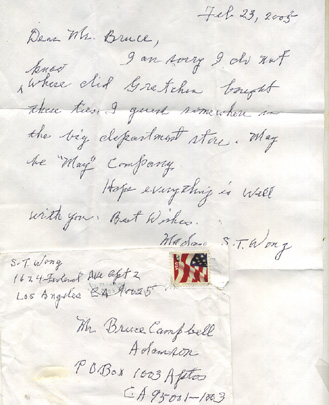 Feb 23, 2005
Dear Mr. Bruce,
I am sorry I do not
know
where did Gretchen bought
these ties. I guess somewhere in
the big department store. May
be "May" Company.
Hope everything is well
with you. Best Wishes.
Madam S. T. Wong
S. T. Wong
1624 Federal Ave apt 2
Los Angeles CA 90025
Mr Bruce Campbell
Adamson
P O Box 1003 Aptos
CA 95001-1003